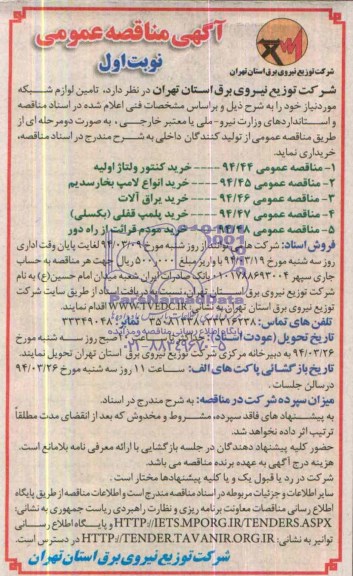 آگهی مناقصه عمومی
نوبت اول
شرکت توزیع نیروی برق استان تهران
شرکت توزیع نیروی برق استان تهران در نظر دارد، تامین لوازم شبکه
موردنیاز خود را به شرح ذیل و براساس مشخصات فنی اعلام شده در اسناد مناقصه
و استانداردهای وزارت نیرو-ملی یا معتبر خارجی، به صورت دومرحله ای از
طریق مناقصه عمومی از تولید کنندگان داخلی به شرح مندرج در اسناد مناقصه،
خریداری نماید.
۱- مناقصه عمومی ۹۴/۴۴ ----- خرید کنتور ولتاژ اولیه
۲- مناقصه عمومی ۹۴/۴۵ ----- خرید انواع لامپ بخارسدیم
۳- مناقصه عمومی ۹۴/۴۶ ----- خرید یراق آلات
۴- مناقصه عمومی ۹۴/۴۷ ----- خرید پلمپ قفلی (بکسلی)
۵- مناقصه عمومی ۹۴/۴۸ ----- خرید مودم قرائت از راه دور
فروش اسناد: شرکت های توانند از روز شنبه مورخ ۹۴/۰۳/۰۹ لغایت پایان وقت اداری
روز سه شنبه مورخ ۹۴/۰۳/۱۹ با واریز مبلغ ۵۰۰٫۰۰۰ ریال جهت هر مناقصه به حساب
جاری سپهر ۰۱۰۱۷۷۸۸۶۹۳۰۰۴ بانک صادرات ایران شعبه میدان امام حسین(ع) به نام
شرکت توزیع نیروی برق استان تهران نسبت به دریافت اسناد از طریق سایت شرکت
توزیع نیروی برق استان تهران به نشانی: WWW.TVEDC.IR اقدام نمایند.
تلفن های تماس: نمابر: ۳۳۳۴۹۰۴۸
ParsNamadData
پایگاه اطلاع رسانی مناقصه و مزایده
۰۲۱-۸۸۳۴۹۶۷۰
تاریخ تحویل (عودت اسناد): صبح روز سه شنبه مورخ
۹۴/۰۳/۲۶ به دبیرخانه مرکزی شرکت توزیع نیروی برق استان تهران تحویل نمایند.
تاریخ بازگشائی پاکت های الف: ساعت ۱۱ روز سه شنبه مورخ ۹۴/۰۳/۲۶
در سالن جلسات.
میزان سپرده شرکت در مناقصه: به شرح مندرج در اسناد.
به پیشنهاد های فاقد سپرده، مشروط و مخدوش که بعد از انقضای مدت مطلقاً
ترتیب اثر داده نخواهد شد.
حضور کلیه پیشنهاد دهندگان در جلسه بازگشایی با ارائه معرفی نامه بلامانع است.
هزینه درج آگهی به عهده برنده مناقصه می باشد.
شرکت در رد یا قبول یک و یا کلیه پیشنهادها مختار است.
سایر اطلاعات و جزئیات مربوطه در اسناد مناقصه مندرج است و اطلاعات مناقصه از طریق پایگاه
اطلاع رسانی مناقصات معاونت برنامه ریزی و نظارت راهبردی ریاست جمهوری به نشانی:
HTTP://IETS.MPORG.IR/TENDERS.ASPX و پایگاه اطلاع رسانی
توانیر به نشانی: HTTP://TENDER.TAVANIR.ORG.IR در دسترس است.
شرکت توزیع نیروی برق استان تهران